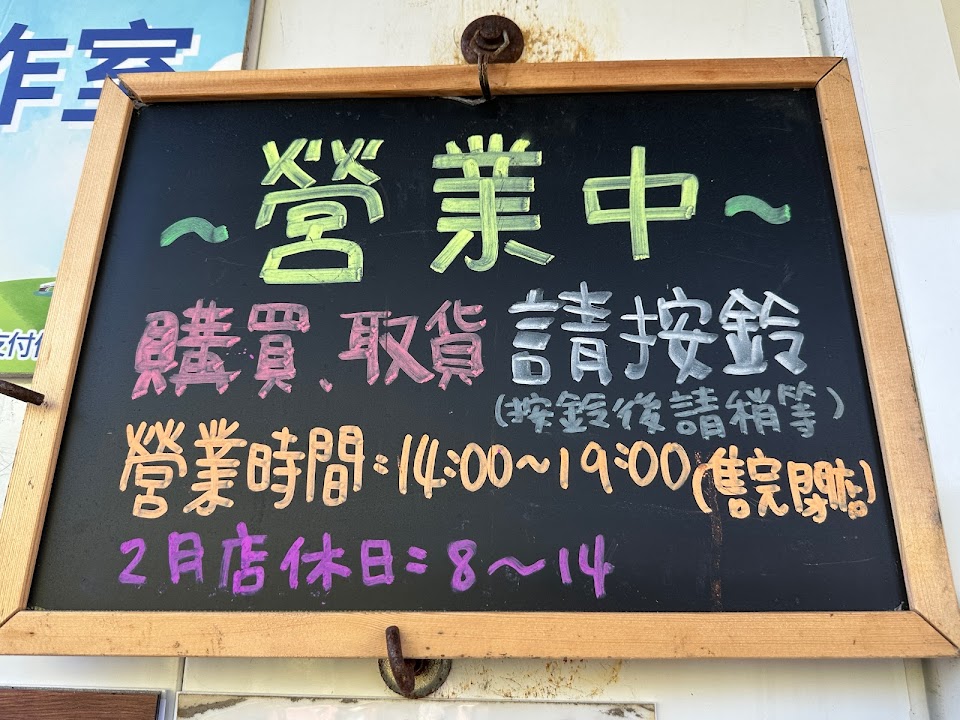 作室
~營業中~
購買、取貨 請按鈴
(按鈴後請稍等)
營業時間:14:00~19:00(售完閉店)
2月店休日:8~14
支付